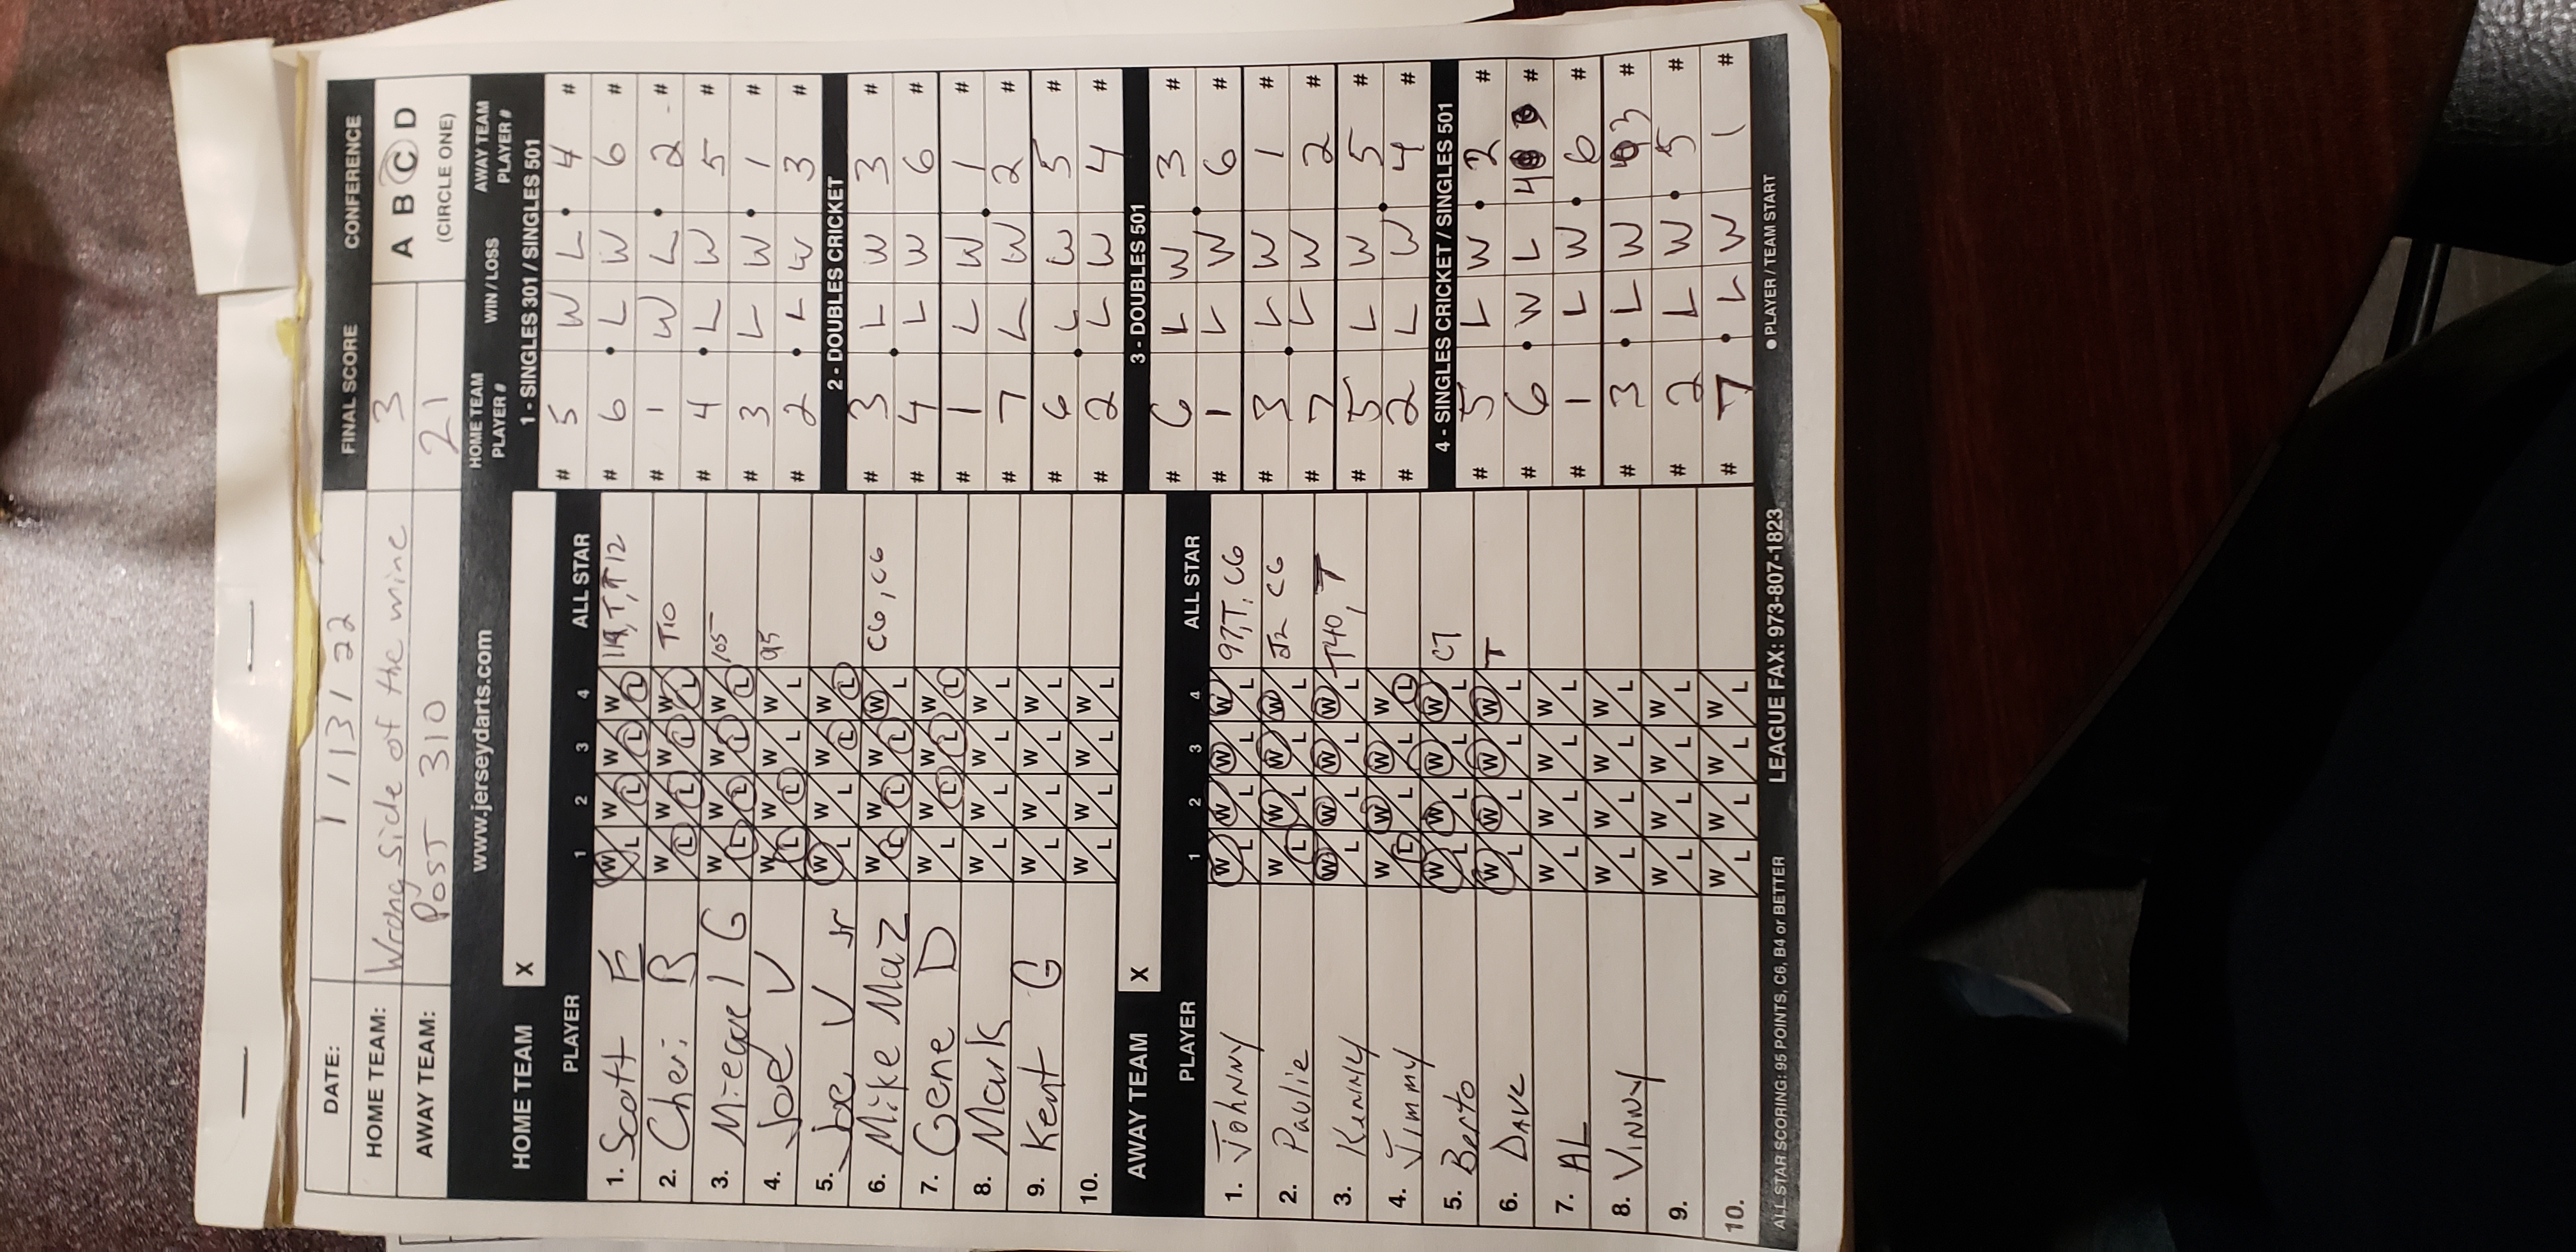 DATE: 1 / 13 / 22 FINAL SCORE CONFERENCE
HOME TEAM: Wrong Side of the mine 3 A B C D
AWAY TEAM: POST 310 21 (CIRCLE ONE)
www.jerseydarts.com
HOME TEAM X
PLAYER 1 2 3 4 ALL STAR
1. Scott F W L W L W L W L 119, T, T12
2. Cheri B W L W L W L W L T10
3. Miegael G W L W L W L W L 105
4. Joe V W L W L W L W L 95
5. Joe V Jr W L W L W L W L
6. Mike Maz W L W L W L W L C6, C6
7. Gene D W L W L W L W L
8. Mark W L W L W L W L
9. Kent G W L W L W L W L
10. W L W L W L W L
AWAY TEAM X
PLAYER 1 2 3 4 ALL STAR
1. JOHNNY W L W L W L W L 97, T, C6
2. Paulie W L W L W L W L C6
3. KENNY W L W L W L W L T40, T
4. JIMMY W L W L W L W L
5. Berto W L W L W L W L C7
6. DAVE W L W L W L W L T
7. AL W L W L W L W L
8. VINNY W L W L W L W L
9. W L W L W L W L
10. W L W L W L W L
HOME TEAM PLAYER # WIN / LOSS AWAY TEAM PLAYER #
1 - SINGLES 301 / SINGLES 501
# 5 W L 4 #
# 6 L W 6 #
# 1 W L 2 #
# 4 L W 5 #
# 3 L W 1 #
# 2 L W 3 #
2 - DOUBLES CRICKET
# 3 L W 3 #
# 4 L W 6 #
# 1 L W 1 #
# 7 L W 2 #
# 6 L W 5 #
# 2 L W 4 #
3 - DOUBLES 501
# 6 L W 3 #
# 1 L W 6 #
# 3 L W 1 #
# 7 L W 2 #
# 5 L W 5 #
# 2 L W 4 #
4 - SINGLES CRICKET / SINGLES 501
# 5 L W 2 #
# 6 W L 4 #
# 1 L W 6 #
# 3 L W 3 #
# 2 L W 5 #
# 7 L W 1 #
● PLAYER / TEAM START
ALL STAR SCORING: 95 POINTS, C6, B4 or BETTER LEAGUE FAX: 973-807-1823